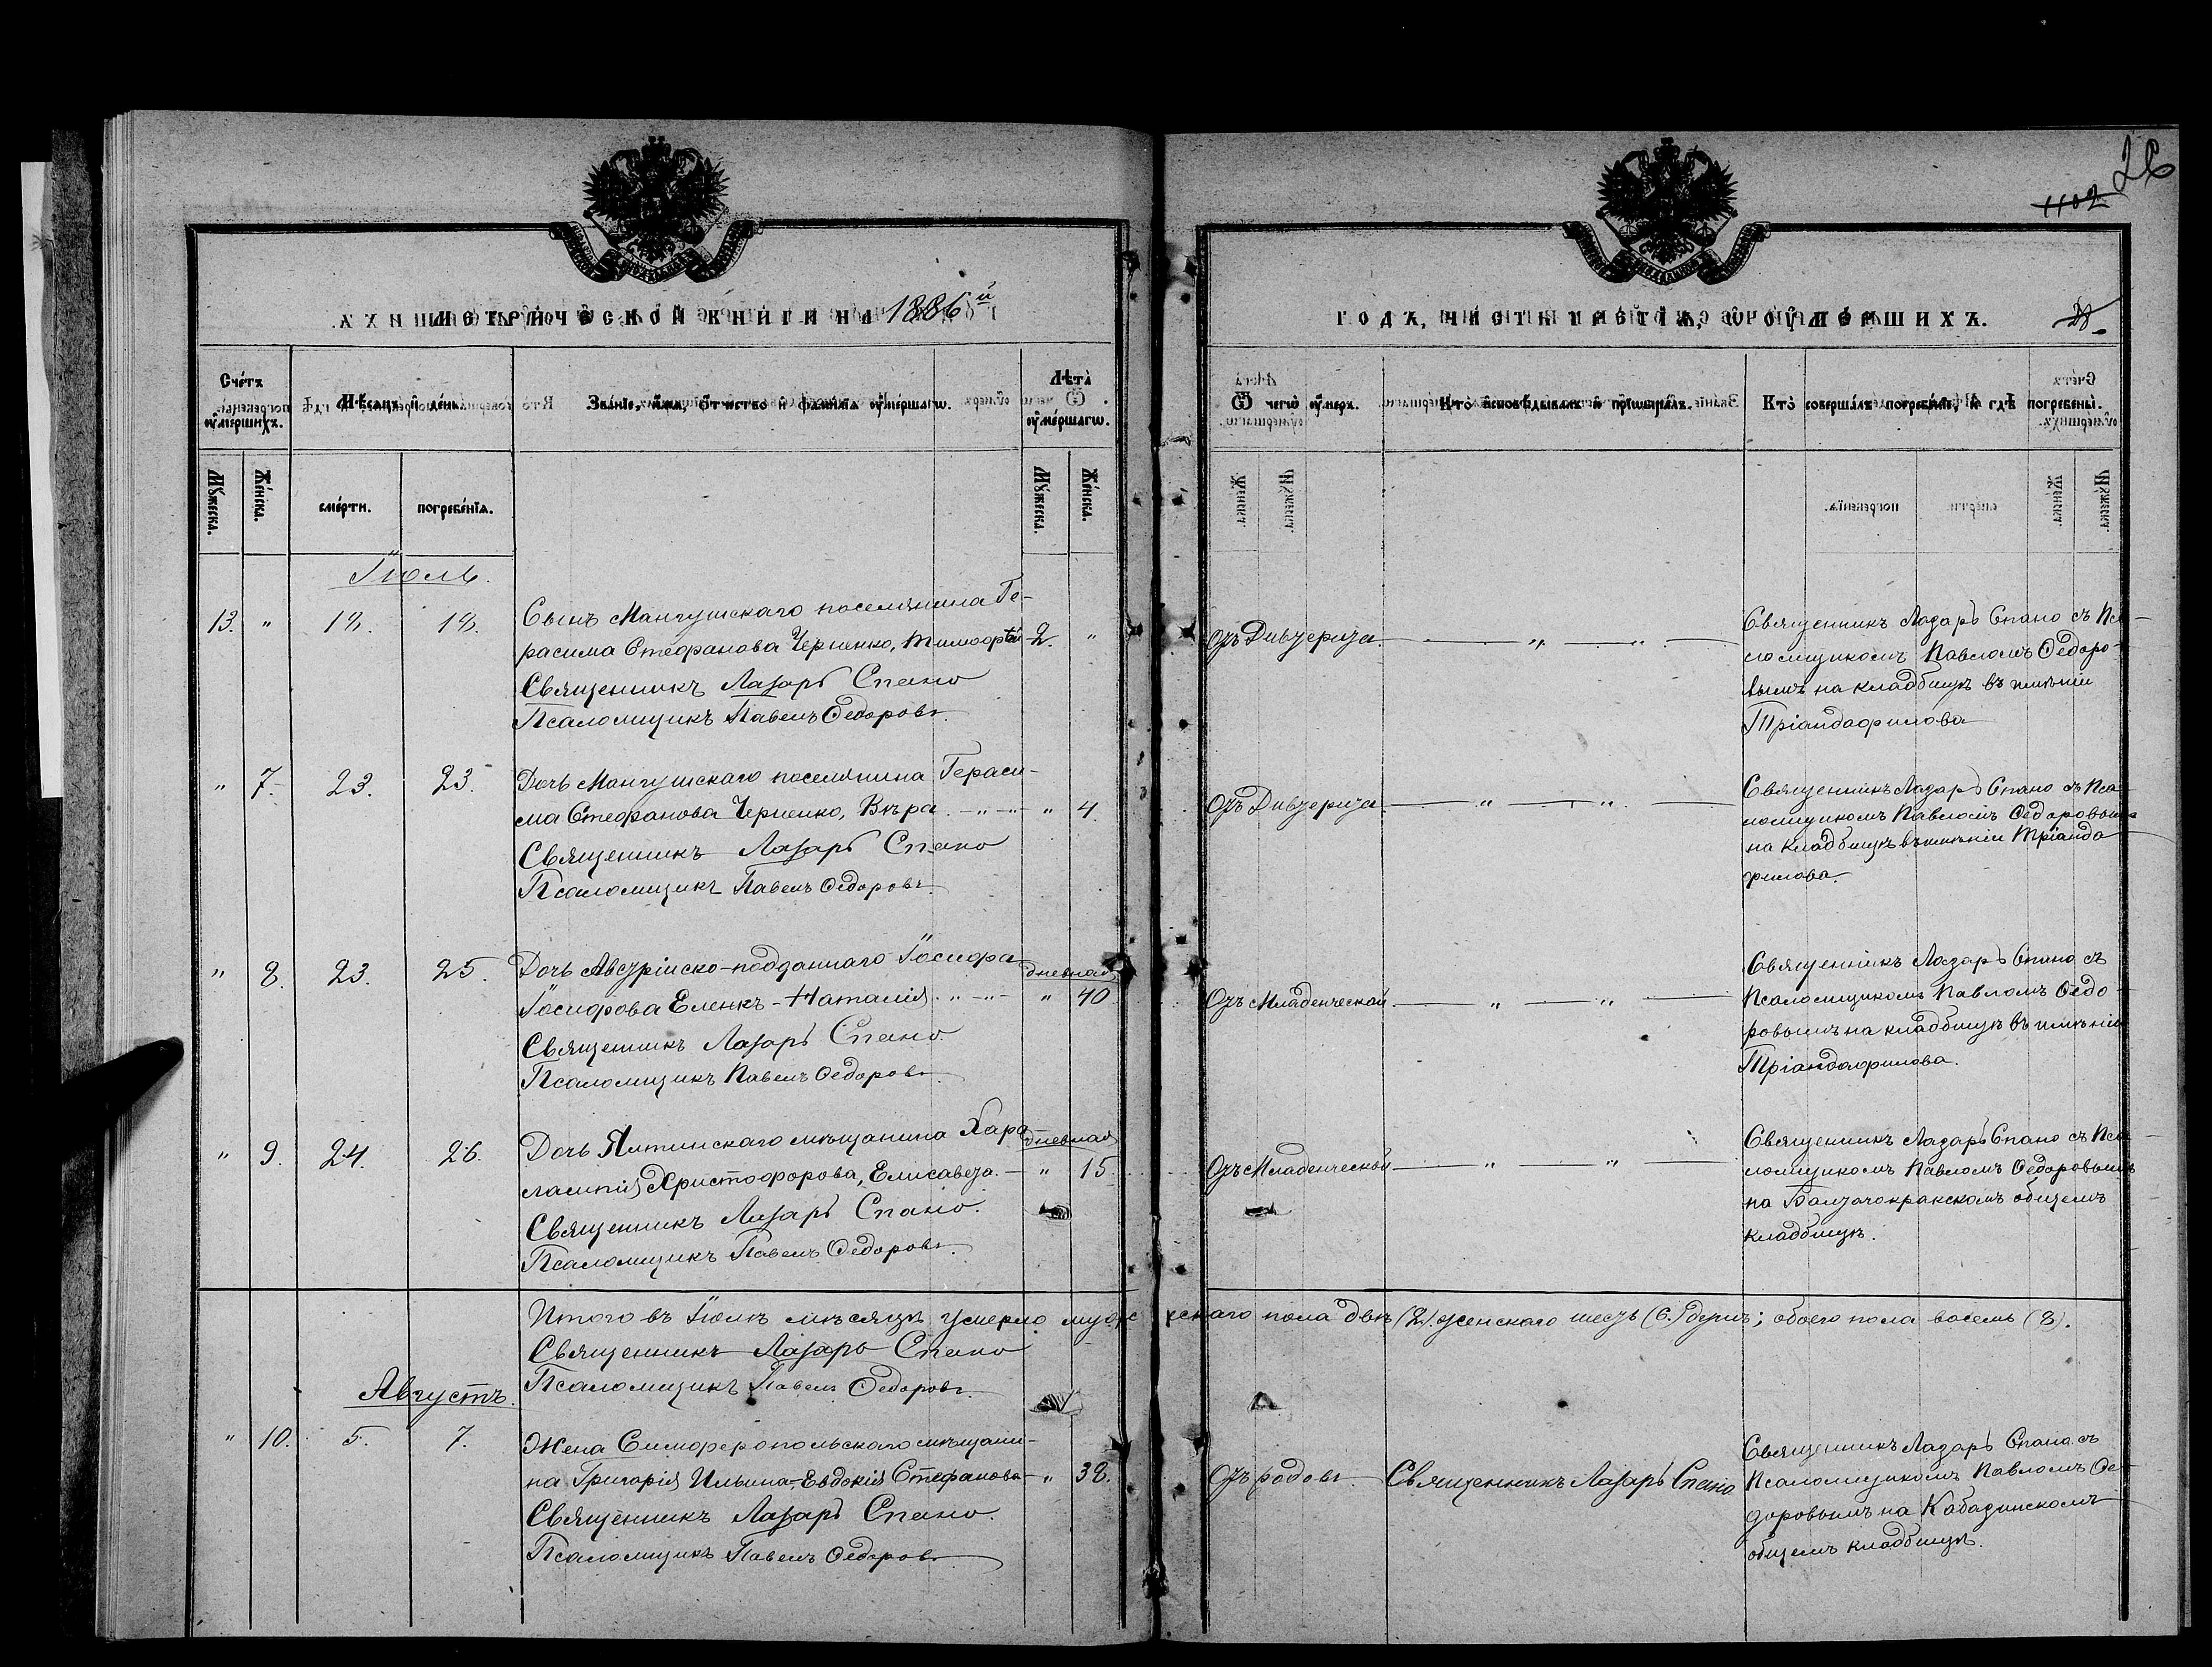 26
1102
Метрической книги на 1886й
годъ, часть третїѧ, ѡ оумершихъ.
Счетъ оумершихъ.
Мѣсѧцъ и день.
Званїе, имѧ, отчество и фамилїѧ оумершагѡ.
Лѣта оумершагѡ.
Ѿ чегѡ оумеръ.
Кто исповѣдывалъ и прїѡбщалъ.
Кто совершалъ погребенїе, и гдѣ погребены.
Мужеска.
Женска.
смерти.
погребенїѧ.
Мужеска.
Женска.
Іюль.
13. " 18. 18.
Сынъ Мангушскаго поселянина Ге-
расима Стефанова Черненко, Тимофѣй - 2. "
Священникъ Лазарь Спано
Псаломщикъ Павелъ Федоровъ.
Отъ Дивтерита. " "
Священникъ Лазарь Спано съ Пса-
ломщикомъ Павломъ Федоро-
вымъ на кладбищѣ въ имѣніи
Тріандафилова
" 7. 23. 23.
Дочь Мангушскаго поселянина Гераси-
ма Стефанова Черненко, Вѣра. - " - " - " 4.
Священникъ Лазарь Спано
Псаломщикъ Павелъ Федоровъ.
Отъ Дивтерита " "
Священникъ Лазарь Спано съ Пса-
ломщикомъ Павломъ Федоровымъ
на кладбищѣ въ имѣніи Тріанда-
филова.
" 8. 23. 25.
Дочь Австрійско-подданнаго Іосифа дневная
Іосифова Еленкъ - Наталія. - " - " - " 40.
Священникъ Лазарь Спано.
Псаломщикъ Павелъ Федоровъ.
Отъ Младенческой. " "
Священникъ Лазарь Спано съ
Псаломщикомъ Павломъ Федо-
ровымъ на кладбищѣ въ имѣніи
Тріандафилова.
" 9. 24. 26.
Дочь Ялтинскаго мѣщанина Хара- дневная
лампія Христофорова, Елисавета. - " 15.
Священникъ Лазарь Спано.
Псаломщикъ Павелъ Федоровъ.
Отъ Младенческой " "
Священникъ Лазарь Спано съ Пса-
ломщикомъ Павломъ Федоровымъ
на общемъ
кладбищѣ.
Итого въ Іюлѣ мѣсяцѣ умерло мужескаго пола двѣ (2). женскаго шесть (6.) душъ; обоего пола восемь (8).
Священникъ Лазарь Спано
Псаломщикъ Павелъ Федоровъ.
Августъ.
" 10. 5. 7.
Жена Симферопольскаго мѣщани-
на Григорія Ильина, Евдокія Стефанова - " 38.
Священникъ Лазарь Спано.
Псаломщикъ Павелъ Федоровъ
Отъ родовъ Священникъ Лазарь Спано
Священникъ Лазарь Спано съ
Псаломщикомъ Павломъ Фе-
доровымъ на Кабазинскомъ
общемъ кладбищѣ.